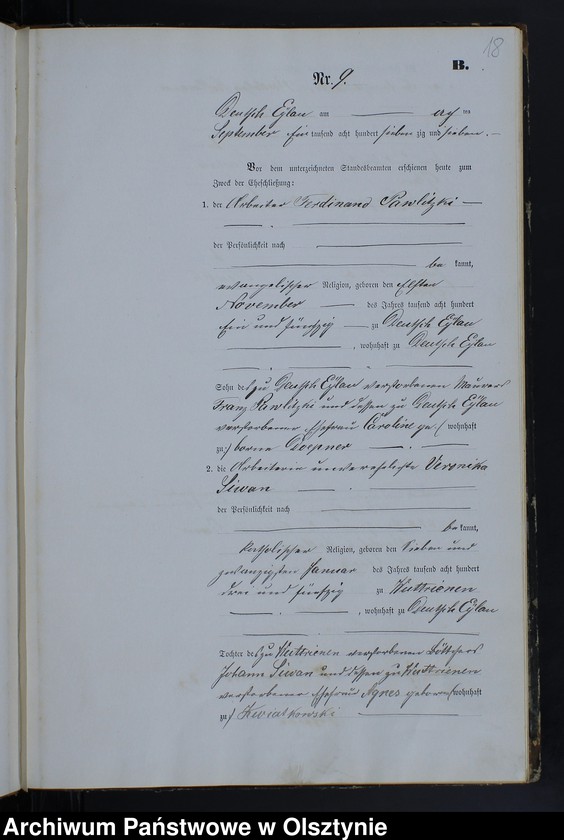 18
B.
Nr. 9.
Deutsch Eylau am acht ten
September ein tausend acht hundert sieben zig und sieben.
Vor dem unterzeichneten Standesbeamten erschienen heute zum
Zweck der Eheschließung:
1. der Arbeiter Ferdinand Pawlitzki
der Persönlichkeit nach
be kannt,
evangelischer Religion, geboren den elften
November des Jahres tausend acht hundert
ein und fünfzig zu Deutsch Eylau
, wohnhaft zu Deutsch Eylau
Sohn des zu Deutsch Eylau verstorbenen Maurers
Franz Pawlitzki und dessen zu Deutsch Eylau
verstorbener Ehefrau Caroline ge (wohnhaft
zu) borene Doepner
2. die Arbeiterin unverehelichte Veronika
Siwan
der Persönlichkeit nach
be kannt,
katholischer Religion, geboren den sieben und
zwanzigsten Januar des Jahres tausend acht hundert
drei und fünfzig zu Wuttrienen
, wohnhaft zu Deutsch Eylau
Tochter des zu Wuttrienen verstorbenen Böttchers
Johann Siwan und dessen zu Wuttrienen
verstorbener Ehefrau Agnes geborene (wohnhaft
zu) Kwiatkowski
Archiwum Państwowe w Olsztynie